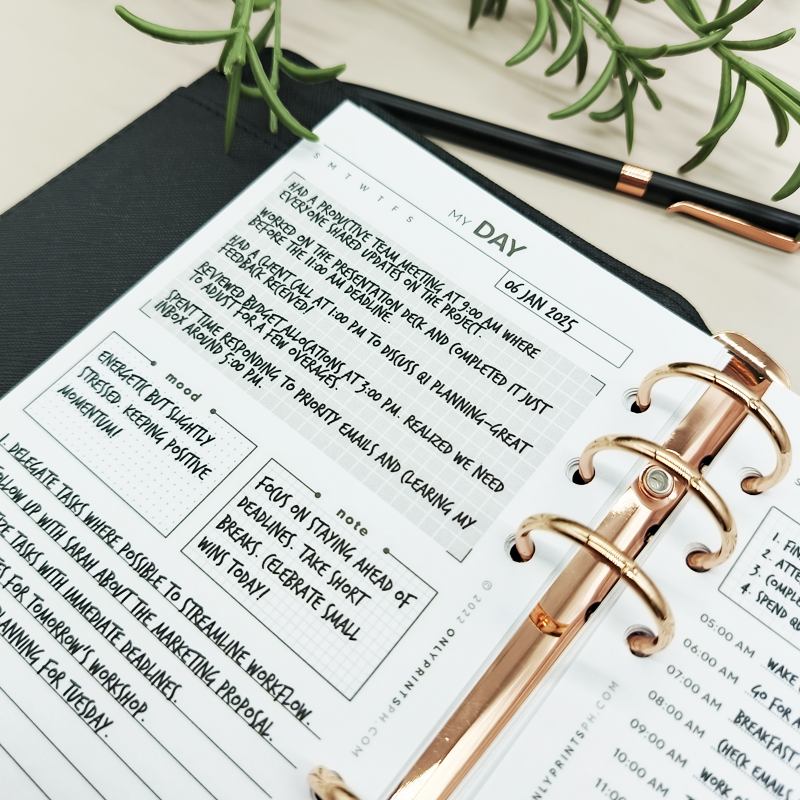 S M T W T F S
MY DAY
06 JAN 2025
HAD A PRODUCTIVE TEAM MEETING AT 9:00 AM WHERE
EVERYONE SHARED UPDATES ON THE PROJECT.
WORKED ON THE PRESENTATION DECK AND COMPLETED IT JUST
BEFORE THE 11:00 AM DEADLINE.
HAD A CLIENT CALL AT 1:00 PM TO DISCUSS Q1 PLANNING-GREAT
FEEDBACK RECEIVED!
REVIEWED BUDGET ALLOCATIONS AT 3:00 PM. REALIZED WE NEED
TO ADJUST FOR A FEW OVERAGES.
SPENT TIME RESPONDING TO PRIORITY EMAILS AND CLEARING MY
INBOX AROUND 5:00 PM.
mood
ENERGETIC BUT SLIGHTLY
STRESSED. KEEPING POSITIVE
MOMENTUM!
note
FOCUS ON STAYING AHEAD OF
DEADLINES. TAKE SHORT
BREAKS. CELEBRATE SMALL
WINS TODAY!
1. DELEGATE TASKS WHERE POSSIBLE TO STREAMLINE WORKFLOW.
FOLLOW UP WITH SARAH ABOUT THE MARKETING PROPOSAL.
TASKS WITH IMMEDIATE DEADLINES.
FOR TOMORROW'S WORKSHOP.
PLANNING FOR TUESDAY.
© 2022 ONLYPRINTSPH.COM
NLYPRINTSPH.COM
1. FIN
2. ATTE
3. COMPL
4. SPEND QU
05:00 AM WAKE
06:00 AM GO FOR A
07:00 AM BREAKFAST
08:00 AM CHECK EMAILS
09:00 AM WORK
10:00 AM
11:00